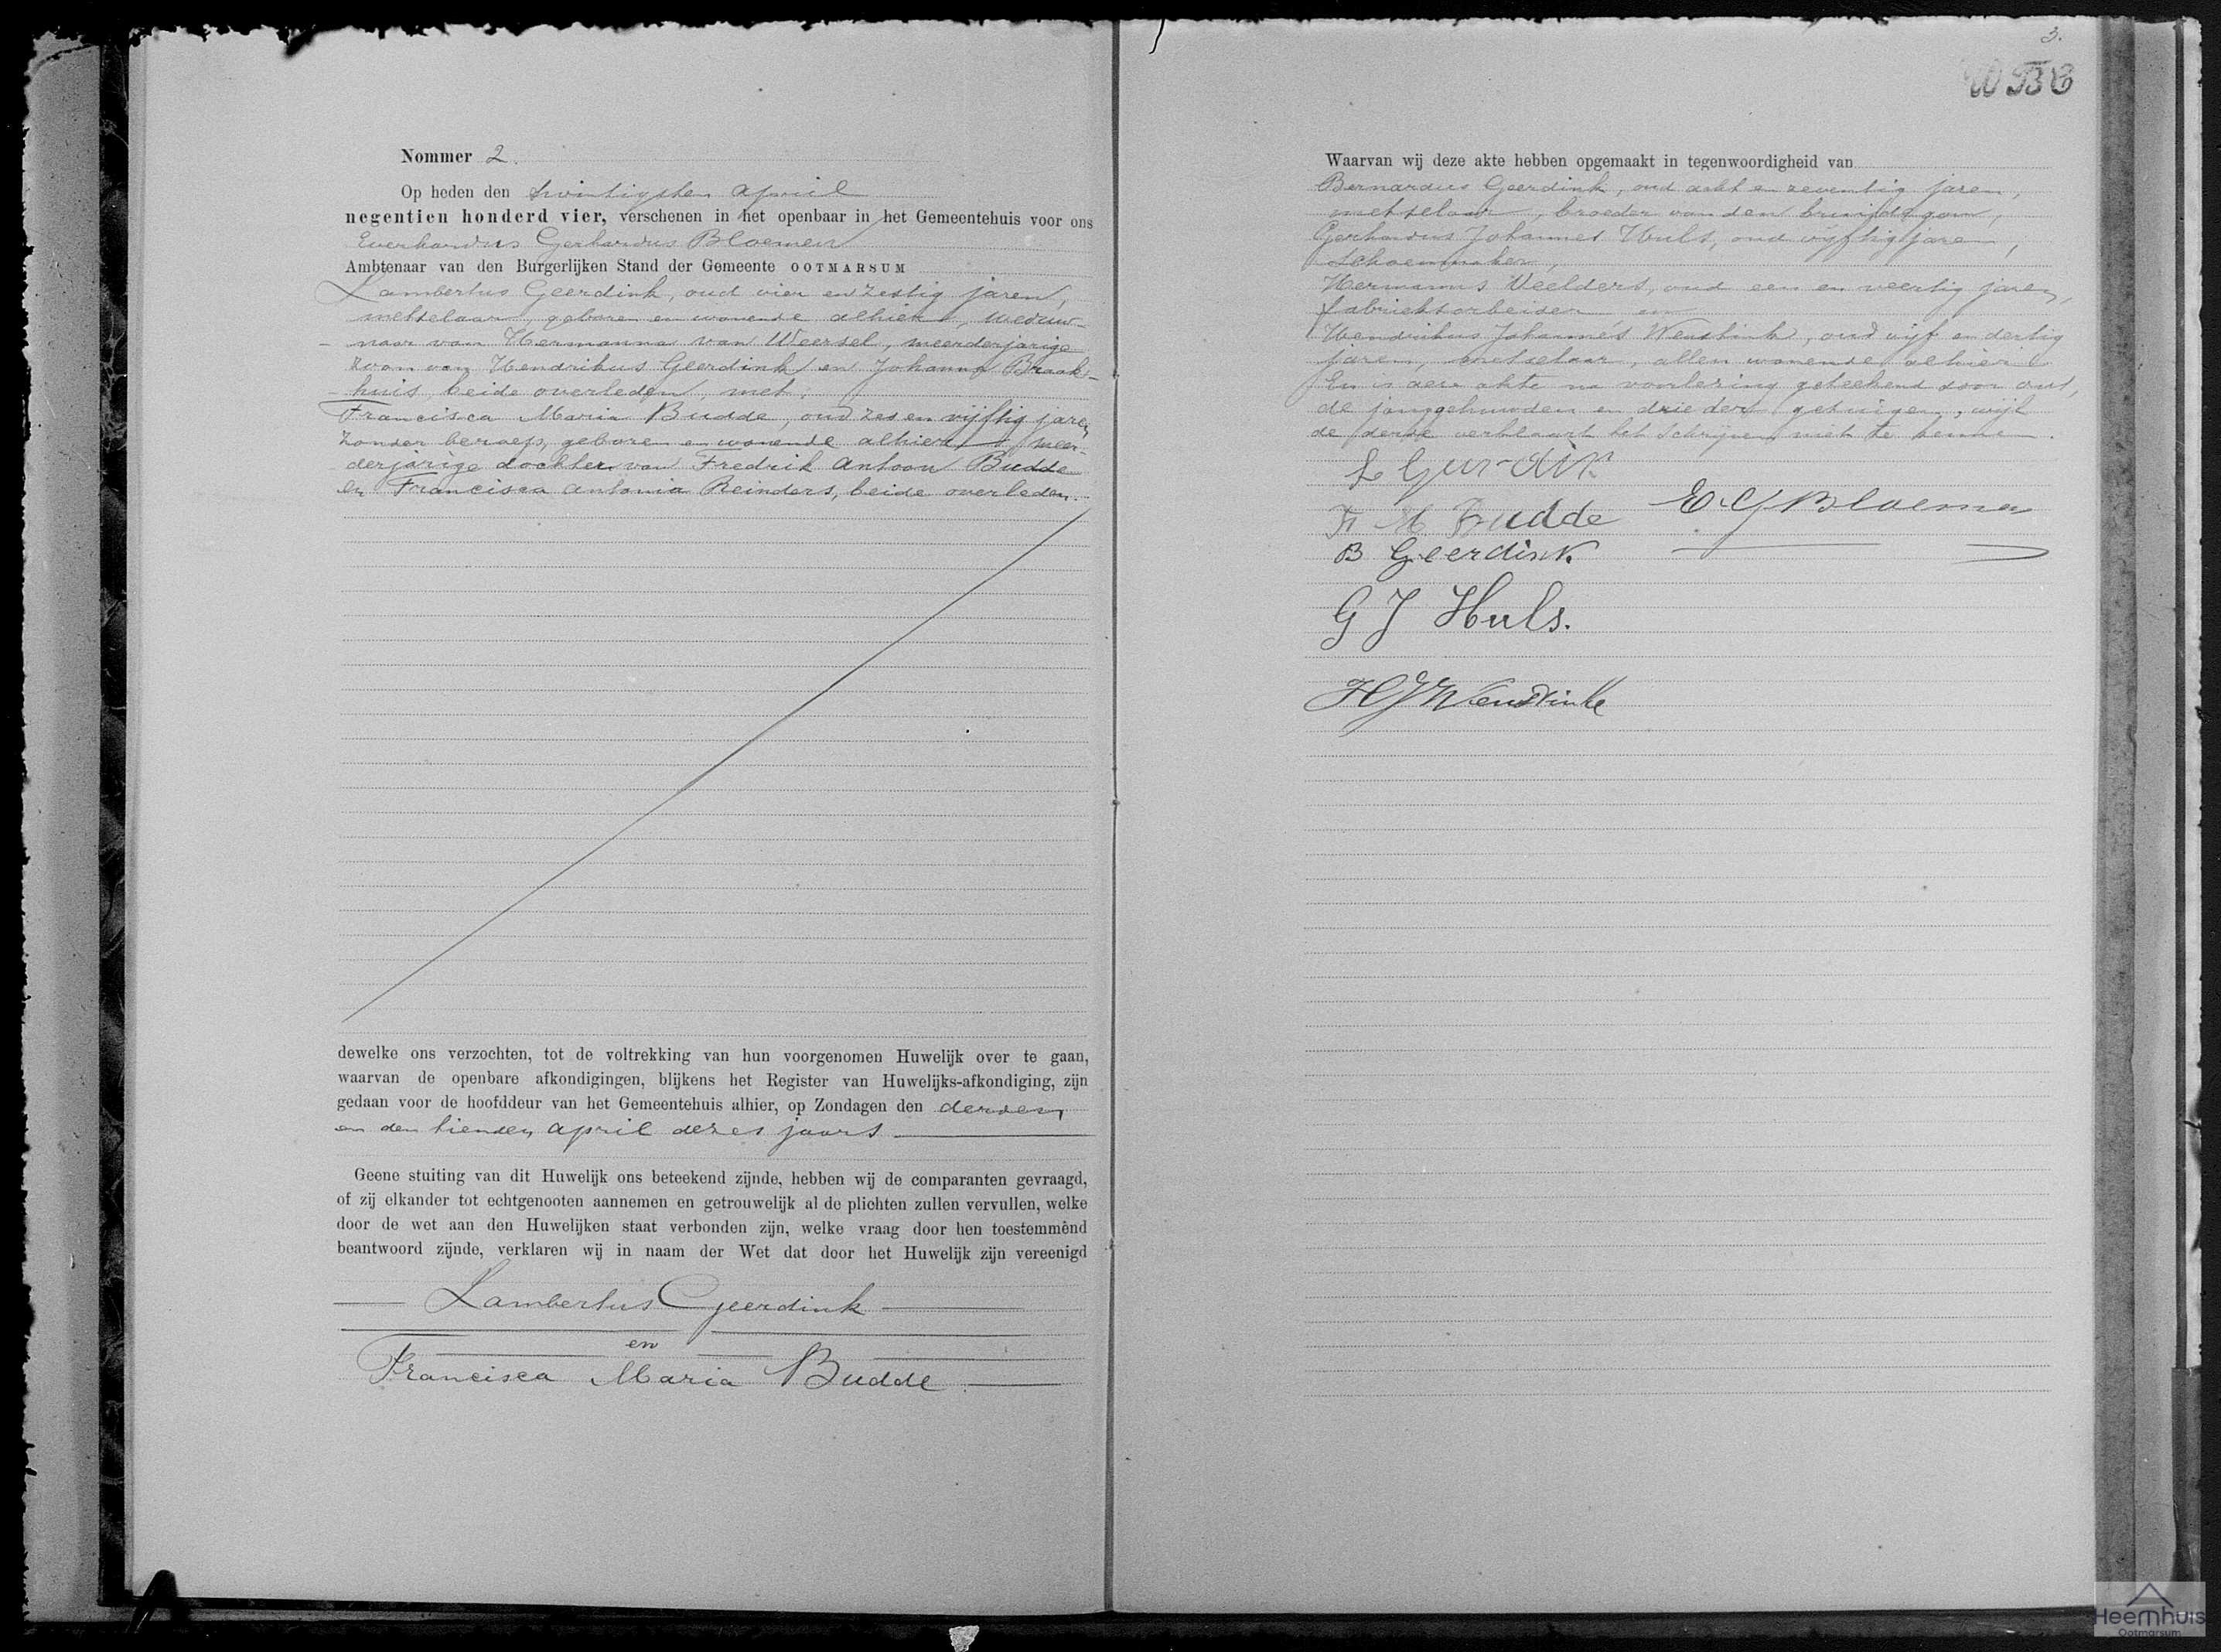 Nommer 2.
Op heden den twintigsten April
negentien honderd vier, verschenen in het openbaar in het Gemeentehuis voor ons
Everhardus Gerhardus Bloemen
Ambtenaar van den Burgerlijken Stand der Gemeente OOTMARSUM
Lambertus Geerdink, oud vier en zestig jaren,
metselaar, geboren en wonende alhier, weduw-
naar van Hermanna van Weersel, meerderjarige
zoon van Hendrikus Geerdink en Johanna Braak-
huis, beide overleden, met:
Francisca Maria Budde, oud zes en vijftig jaren,
zonder beroep, geboren en wonende alhier, meer-
derjarige dochter van Fredrik Antoon Budde
en Francisca Antonia Reinders, beide overleden.
dewelke ons verzochten, tot de voltrekking van hun voorgenomen Huwelijk over te gaan,
waarvan de openbare afkondigingen, blijkens het Register van Huwelijks-afkondiging, zijn
gedaan voor de hoofddeur van het Gemeentehuis alhier, op Zondagen den derden
en den tienden April dezes jaars
Geene stuiting van dit Huwelijk ons beteekend zijnde, hebben wij de comparanten gevraagd,
of zij elkander tot echtgenooten aannemen en getrouwelijk al de plichten zullen vervullen, welke
door de wet aan den Huwelijken staat verbonden zijn, welke vraag door hen toestemmend
beantwoord zijnde, verklaren wij in naam der Wet dat door het Huwelijk zijn vereenigd
Lambertus Geerdink
en
Francisca Maria Budde
3.
Waarvan wij deze akte hebben opgemaakt in tegenwoordigheid van
Bernardus Geerdink, oud acht en zeventig jaren,
metselaar, broeder van den bruidegom,
Gerhardus Johannes Huls, oud vijftig jaren,
schoenmaker,
Hermannus Weelders, oud een en veertig jaren,
fabrieksarbeider en
Hendrikus Johannes Wenstink, oud vijf en dertig
jaren, metselaar, allen wonende alhier
En is deze akte na voorlezing geteekend door ons,
de jonggehuwden en drie der getuigen, wijl
de derde verklaart het schrijven niet te kennen.
F M Budde
E. G Bloemen
B Geerdink
G J Huls.
H J Wenstink
Heemhuis
Ootmarsum